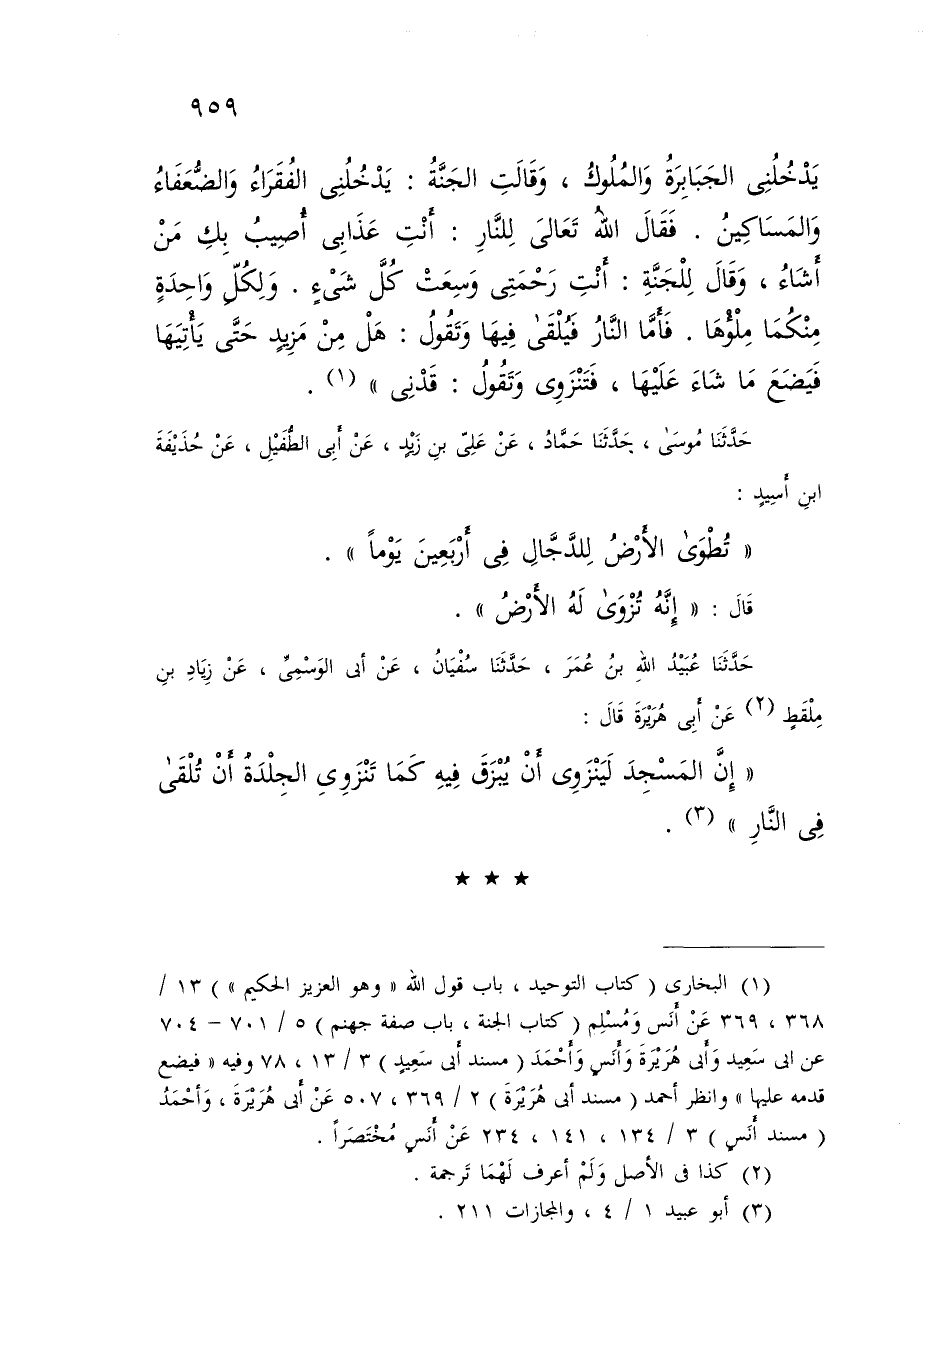 ٩٥٩
يَدْخُلُنِى الجَبَابِرَةُ وَالمُلُوكُ ، وَقَالَتِ الجَنَّةُ : يَدْخُلُنِى الفُقَرَاءُ وَالضُّعَفَاءُ
وَالمَسَاكِينُ . فَقَالَ اللهُ تَعَالىَ لِلنَّارِ : أَنْتِ عَذَابِى أُصِيبُ بِكِ مَنْ
أَشَاءُ ، وَقَالَ لِلْجَنَّةِ : أَنْتِ رَحْمَتِى وَسِعَتْ كُلَّ شَىْءٍ . وَلِكُلِّ وَاحِدَةٍ
مِنْكُمَا مِلْؤُهَا . فَأَمَّا النَّارُ فَيُلْقَىٰ فِيهَا وَتَقُولُ : هَلْ مِنْ مَزِيدٍ حَتَّى يَأْتِيَهَا
فَيَضَعَ مَا شَاءَ عَلَيْهَا ، فَتَنْزَوِى وَتَقُولُ : قَدْنِى » (١) .
حَدَّثَنَا مُوسَىٰ ، حَدَّثَنَا حَمَّادُ ، عَنْ عَلِىّ بنِ زَيْدٍ ، عَنْ أَبِى الطُّفَيْلِ ، عَنْ حُذَيْفَةَ
ابنِ أَسِيدٍ :
« تُطْوَىٰ الأَرْضُ لِلدَّجَّالِ فِى أَرْبَعِينَ يَوْماً » .
قَالَ : « إِنَّهُ تُزْوَىٰ لَهُ الأَرْضُ » .
حَدَّثَنَا عُبَيْدُ اللهِ بنُ عُمَرَ ، حَدَّثَنَا سُفْيَانُ ، عَنْ أبى الوَسْمِىِّ ، عَنْ زِيَادِ بنِ
مِلْقَطٍ (٢) عَنْ أَبِى هُرَيْرَةَ قَالَ :
« إِنَّ المَسْجِدَ لَيَنْزَوِى أَنْ يُبْزَقَ فِيهِ كَمَا تَنْزَوِىِ الجِلْدَةُ أَنْ تُلْقَىٰ
فِى النَّارِ » (٣) .
★ ★ ★
(١) البخارى ( كتاب التوحيد ، باب قول الله « وهو العزيز الحكيم » ) ١٣ /
٣٦٨ ، ٣٦٩ عَنْ أَنَس وَمُسْلِم ( كتاب الجنة ، باب صفة جهنم ) ٥ / ٧٠١ – ٧٠٤
عن ابى سَعِيد وَأَبى هُرَيْرَةَ وَأَنَسٍ وَأَحْمَدَ ( مسند أَبى سَعِيدٍ ) ٣ / ١٣ ، ٧٨ وفيه « فيضع
قدمه عليها » وانظر أحمد ( مسند أبى هُرَيْرَةَ ) ٢ / ٣٦٩ ، ٥٠٧ عَنْ أَبى هُرَيْرَةَ ، وَأحْمَدُ
( مسند أَنَسٍ ) ٣ / ١٣٤ ، ١٤١ ، ٢٣٤ عَنْ أَنَسٍ مُخْتَصَراً .
(٢) كذا فى الأصل وَلَمْ أعرف لَهُمَا تَرجمة .
(٣) أبو عبيد ١ / ٤ ، والمجازات ٢١١ .